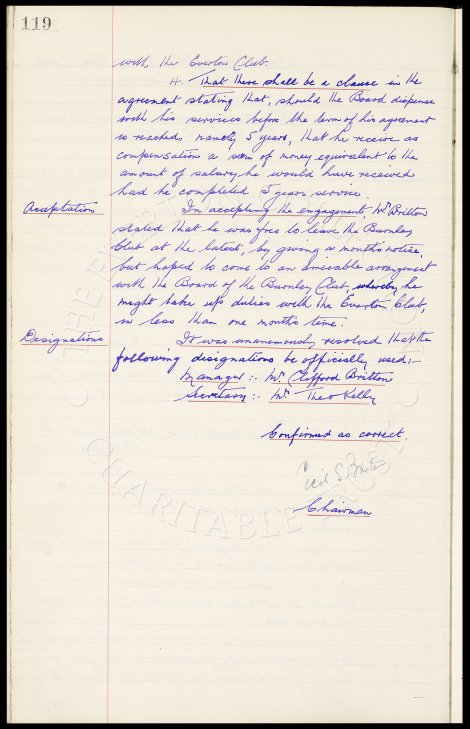 119
with the Everton Club.
4. That there shall be a clause in the
agreement stating that, should the Board dispense
with his services before the term of his agreement
is reached, namely 5 years, that he receive as
compensation a sum of money equivalent to the
amount of salary he would have received
had he completed 5 years service.
Acceptation
In accepting the engagement, Mr Britton
stated that he was free to leave the Burnley
Club at the latest, by giving a month's notice,
but hoped to come to an amicable arrangement
with the Board of the Burnley Club, whereby he
might take up duties with the Everton Club,
in less than one month's time.
Designations
It was unanimously resolved that the
following designations be officially used:-
Manager:- Mr Clifford Britton
Secretary:- Mr Theo Kelly
Confirmed as correct.
Cecil S.
Chairman
CHARITABLE TRUST